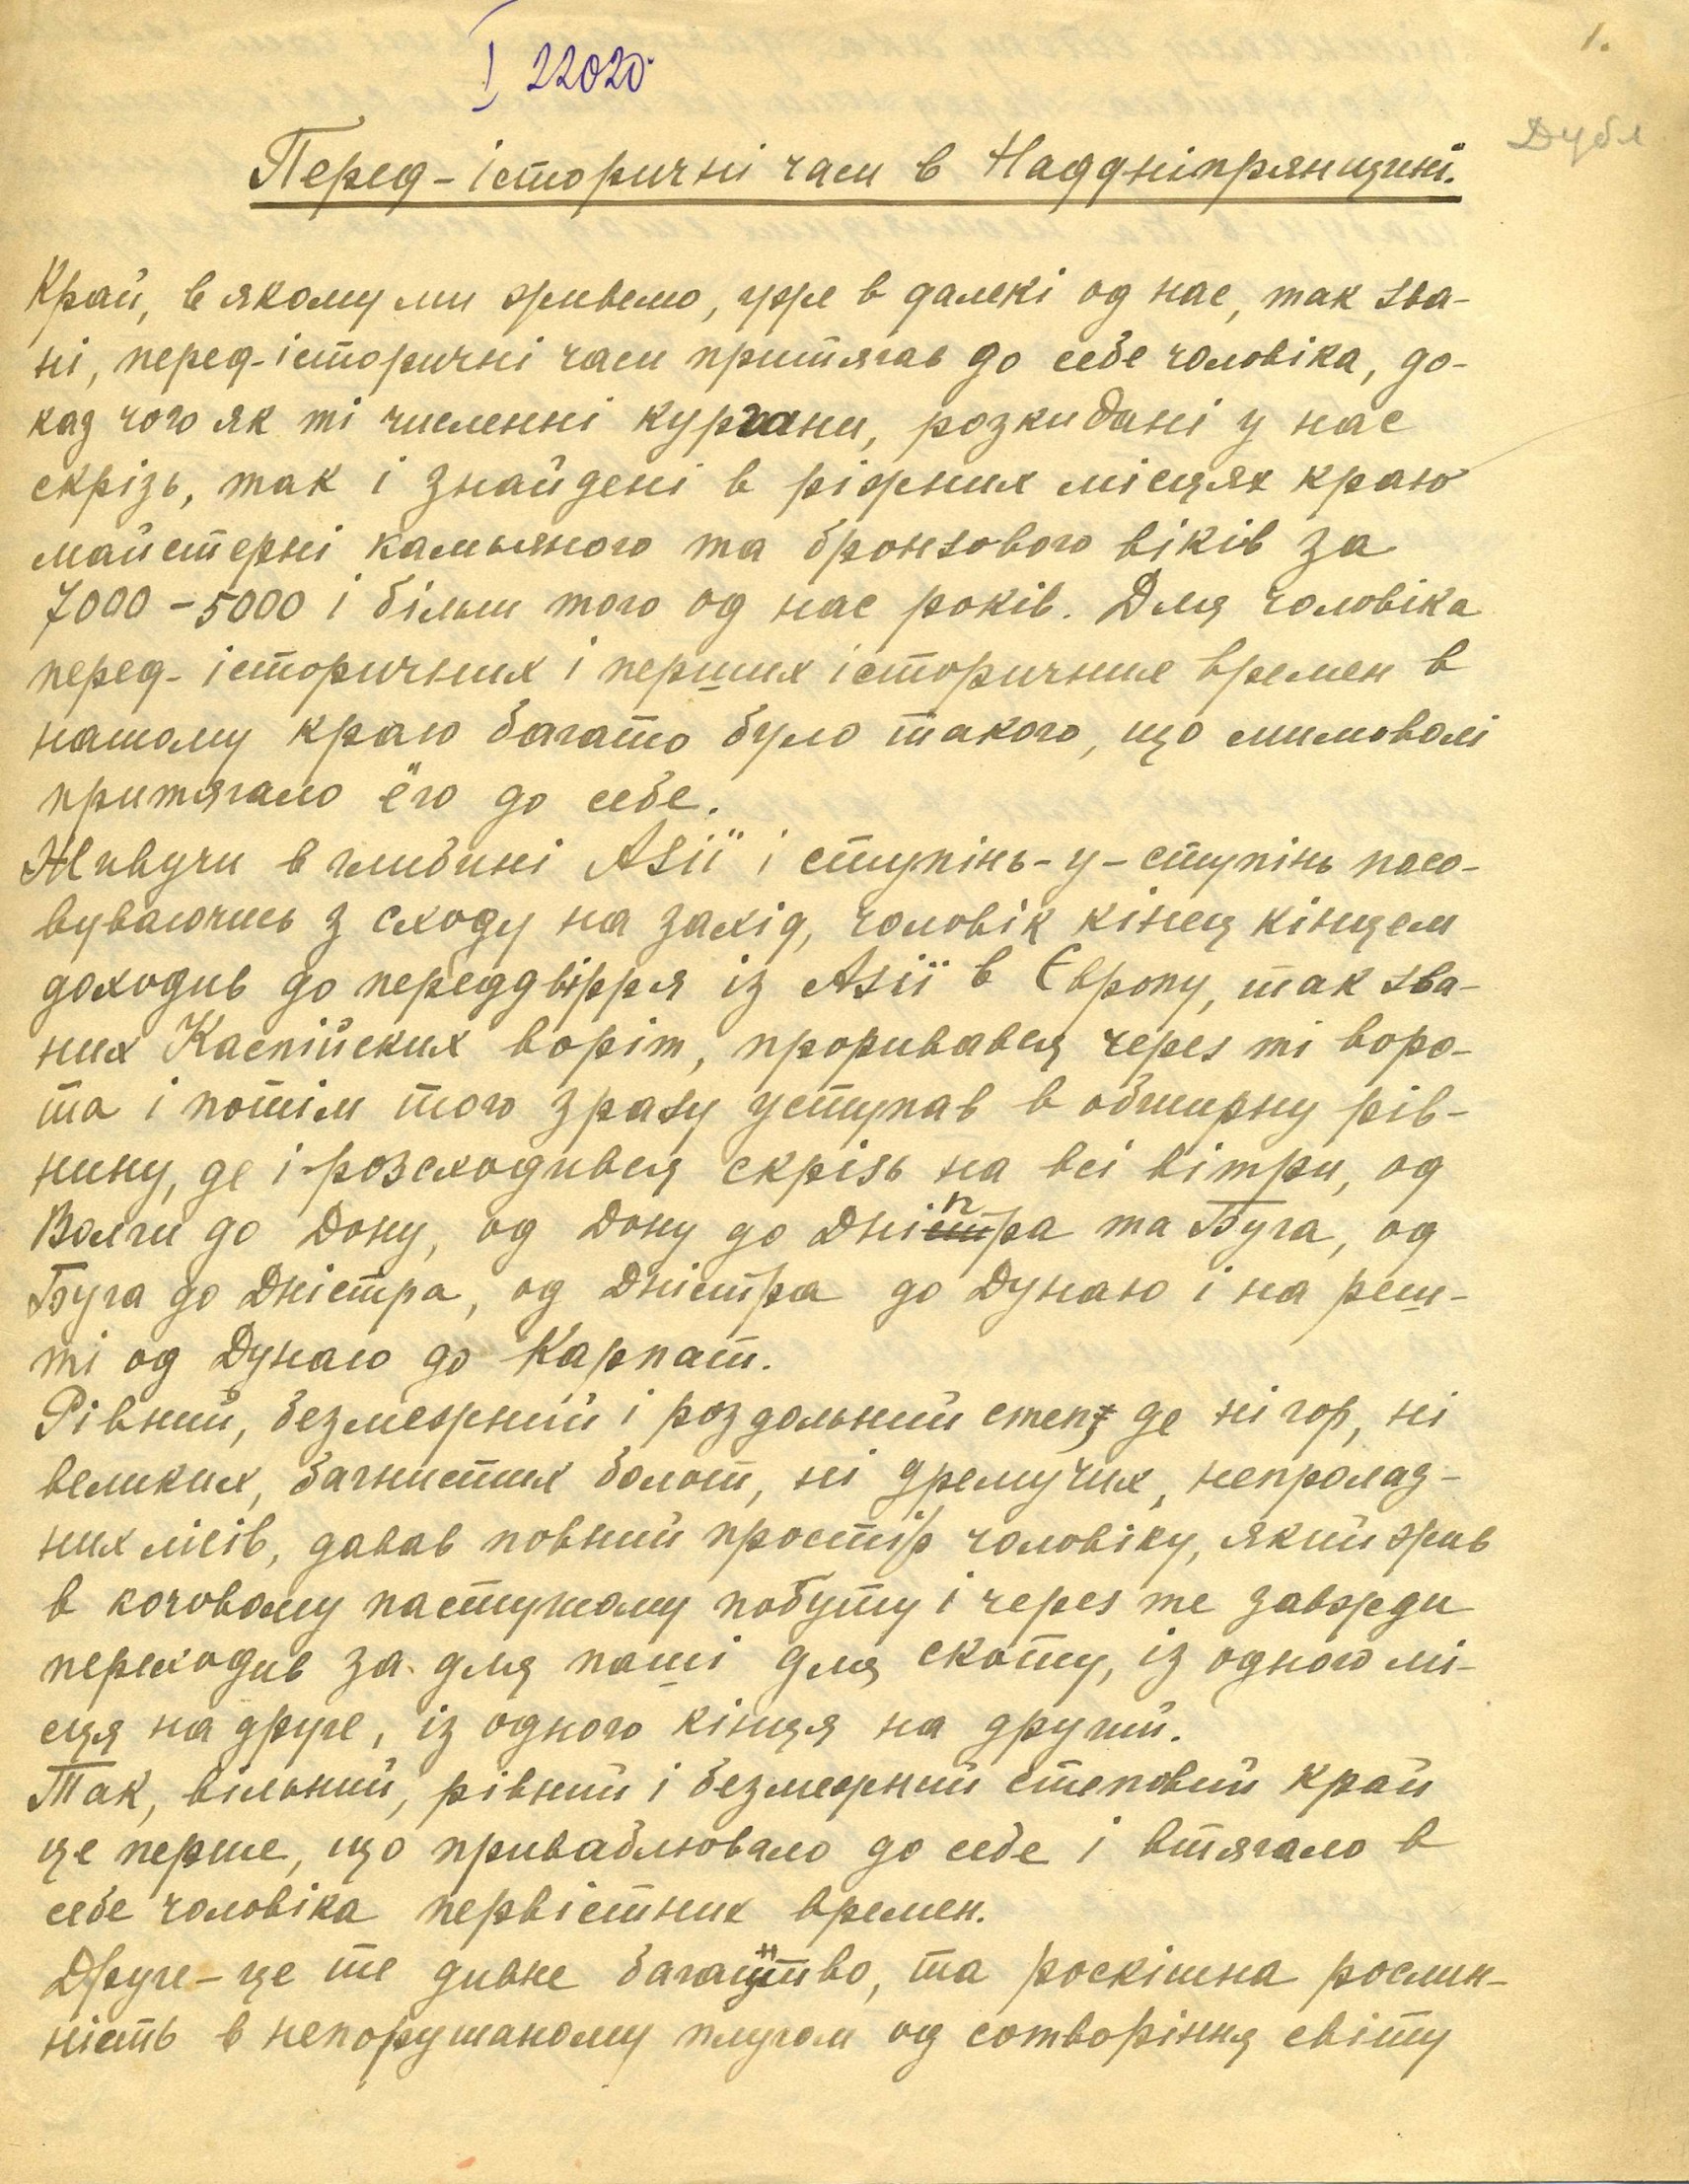 1.
I 22020
Дубл
Перед-історичні часи в Наддніпрянщині.
Край, в якому ми живемо, уже в далекі од нас, так зва-
ні, перед-історичні часи притягав до себе чоловіка, до-
каз чого як ті численні кургани, розкидані у нас
скрізь, так і знайдені в ріжних місцях краю
майстерні камьяного та бронзового віків за
7000-5000 і більш того од нас років. Для чоловіка
перед-історичних і перших історичних времен в
нашому краю багато було такого, що мимоволі
притягало ёго до себе.
Живучи в глибині Азії і ступінь-у-ступінь посо-
вуваючись з сходу на захід, чоловік кінец кінцем
доходив до переддвірря із Азії в Європу, так зва-
них Каспійских воріт, проривався через ті воро-
та і потім того зразу уступав в обширну рів-
нину, де і розсходився скрізь на всі вітри, од
Волги до Дону, од Дону до Дніпра та Буга, од
Буга до Дністра, од Дністра до Дунаю і на реш-
ті од Дунаю до Карпат.
Рівний, безмежний і роздольний степ, де ні гор, ні
великих, багнистих болот, ні дремучих, непролаз-
них лісів, давав повний простір чоловіку, який жив
в кочовому пастушому побуту і через те завжди
переходив за-для паші для скоту, із одного мі-
сця на друге, із одного кінця на другий.
Так, вільний, рівний і безмежний степовий край
це перше, що приваблювало до себе і втягало в
себе чоловіка первістних времен.
Друге - це те дивне багатство, та роскішна рослин-
ність в непорушаному плугом од сотворіння світу